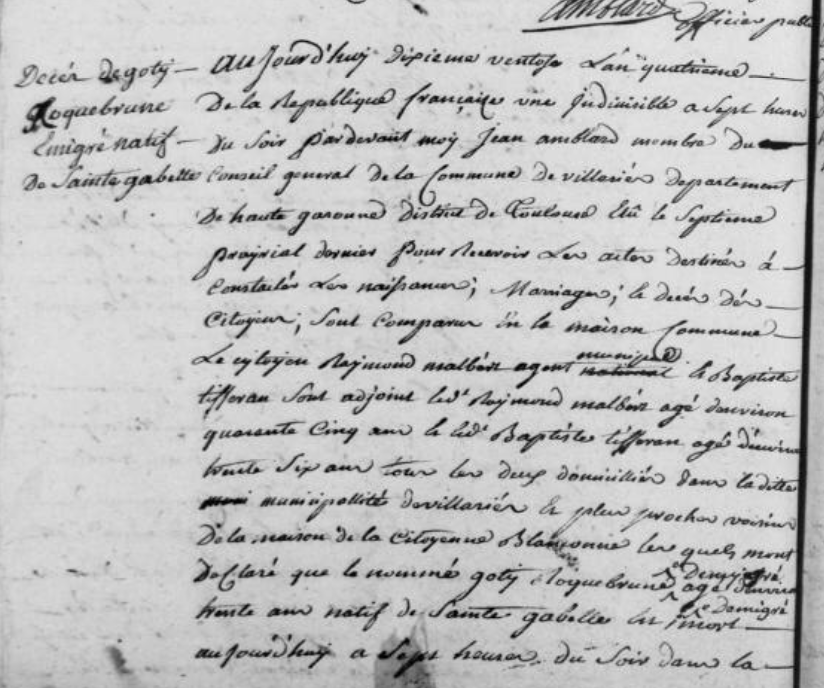 amblard officier publi
Decés de goty
Roquebrune
Emigré natif
De Sainte gabelle
aujourd'huy dixieme ventose L'an quatrieme
De la Republique françaize une Indivisible a Sept heures
du Soir pardevant moy Jean amblard membre du
Conseil general de la Commune de villariés departement
De haute garonne district de Toulouse Elû le Septieme
prairial dernier pour Recevoir Les actes destinés á
Constatér Les naissances; Marriages; le decés dés
Citoyens; sont Comparus en la maison Commune
Le cytoyen Raymond malbért agent national municipal et Baptiste
tifferan sont adjoint led.t Raymond malbért agé d'environ
quarante Cinq ans le led.t Baptiste tifferan agé d'environ
trente Six ans tous les deux domicilliés dans la ditte
municipallité de villariés et plus proches voisins
de la maison de la Citoyenne Blanconne les quels m'ont
Declaré que le nommé goty Roquebrune d'emigré agé d'environ
trente ans natif de Sainte gabelle est mort d'emigré
aujourd'huy a Sept heures du Soir dans la